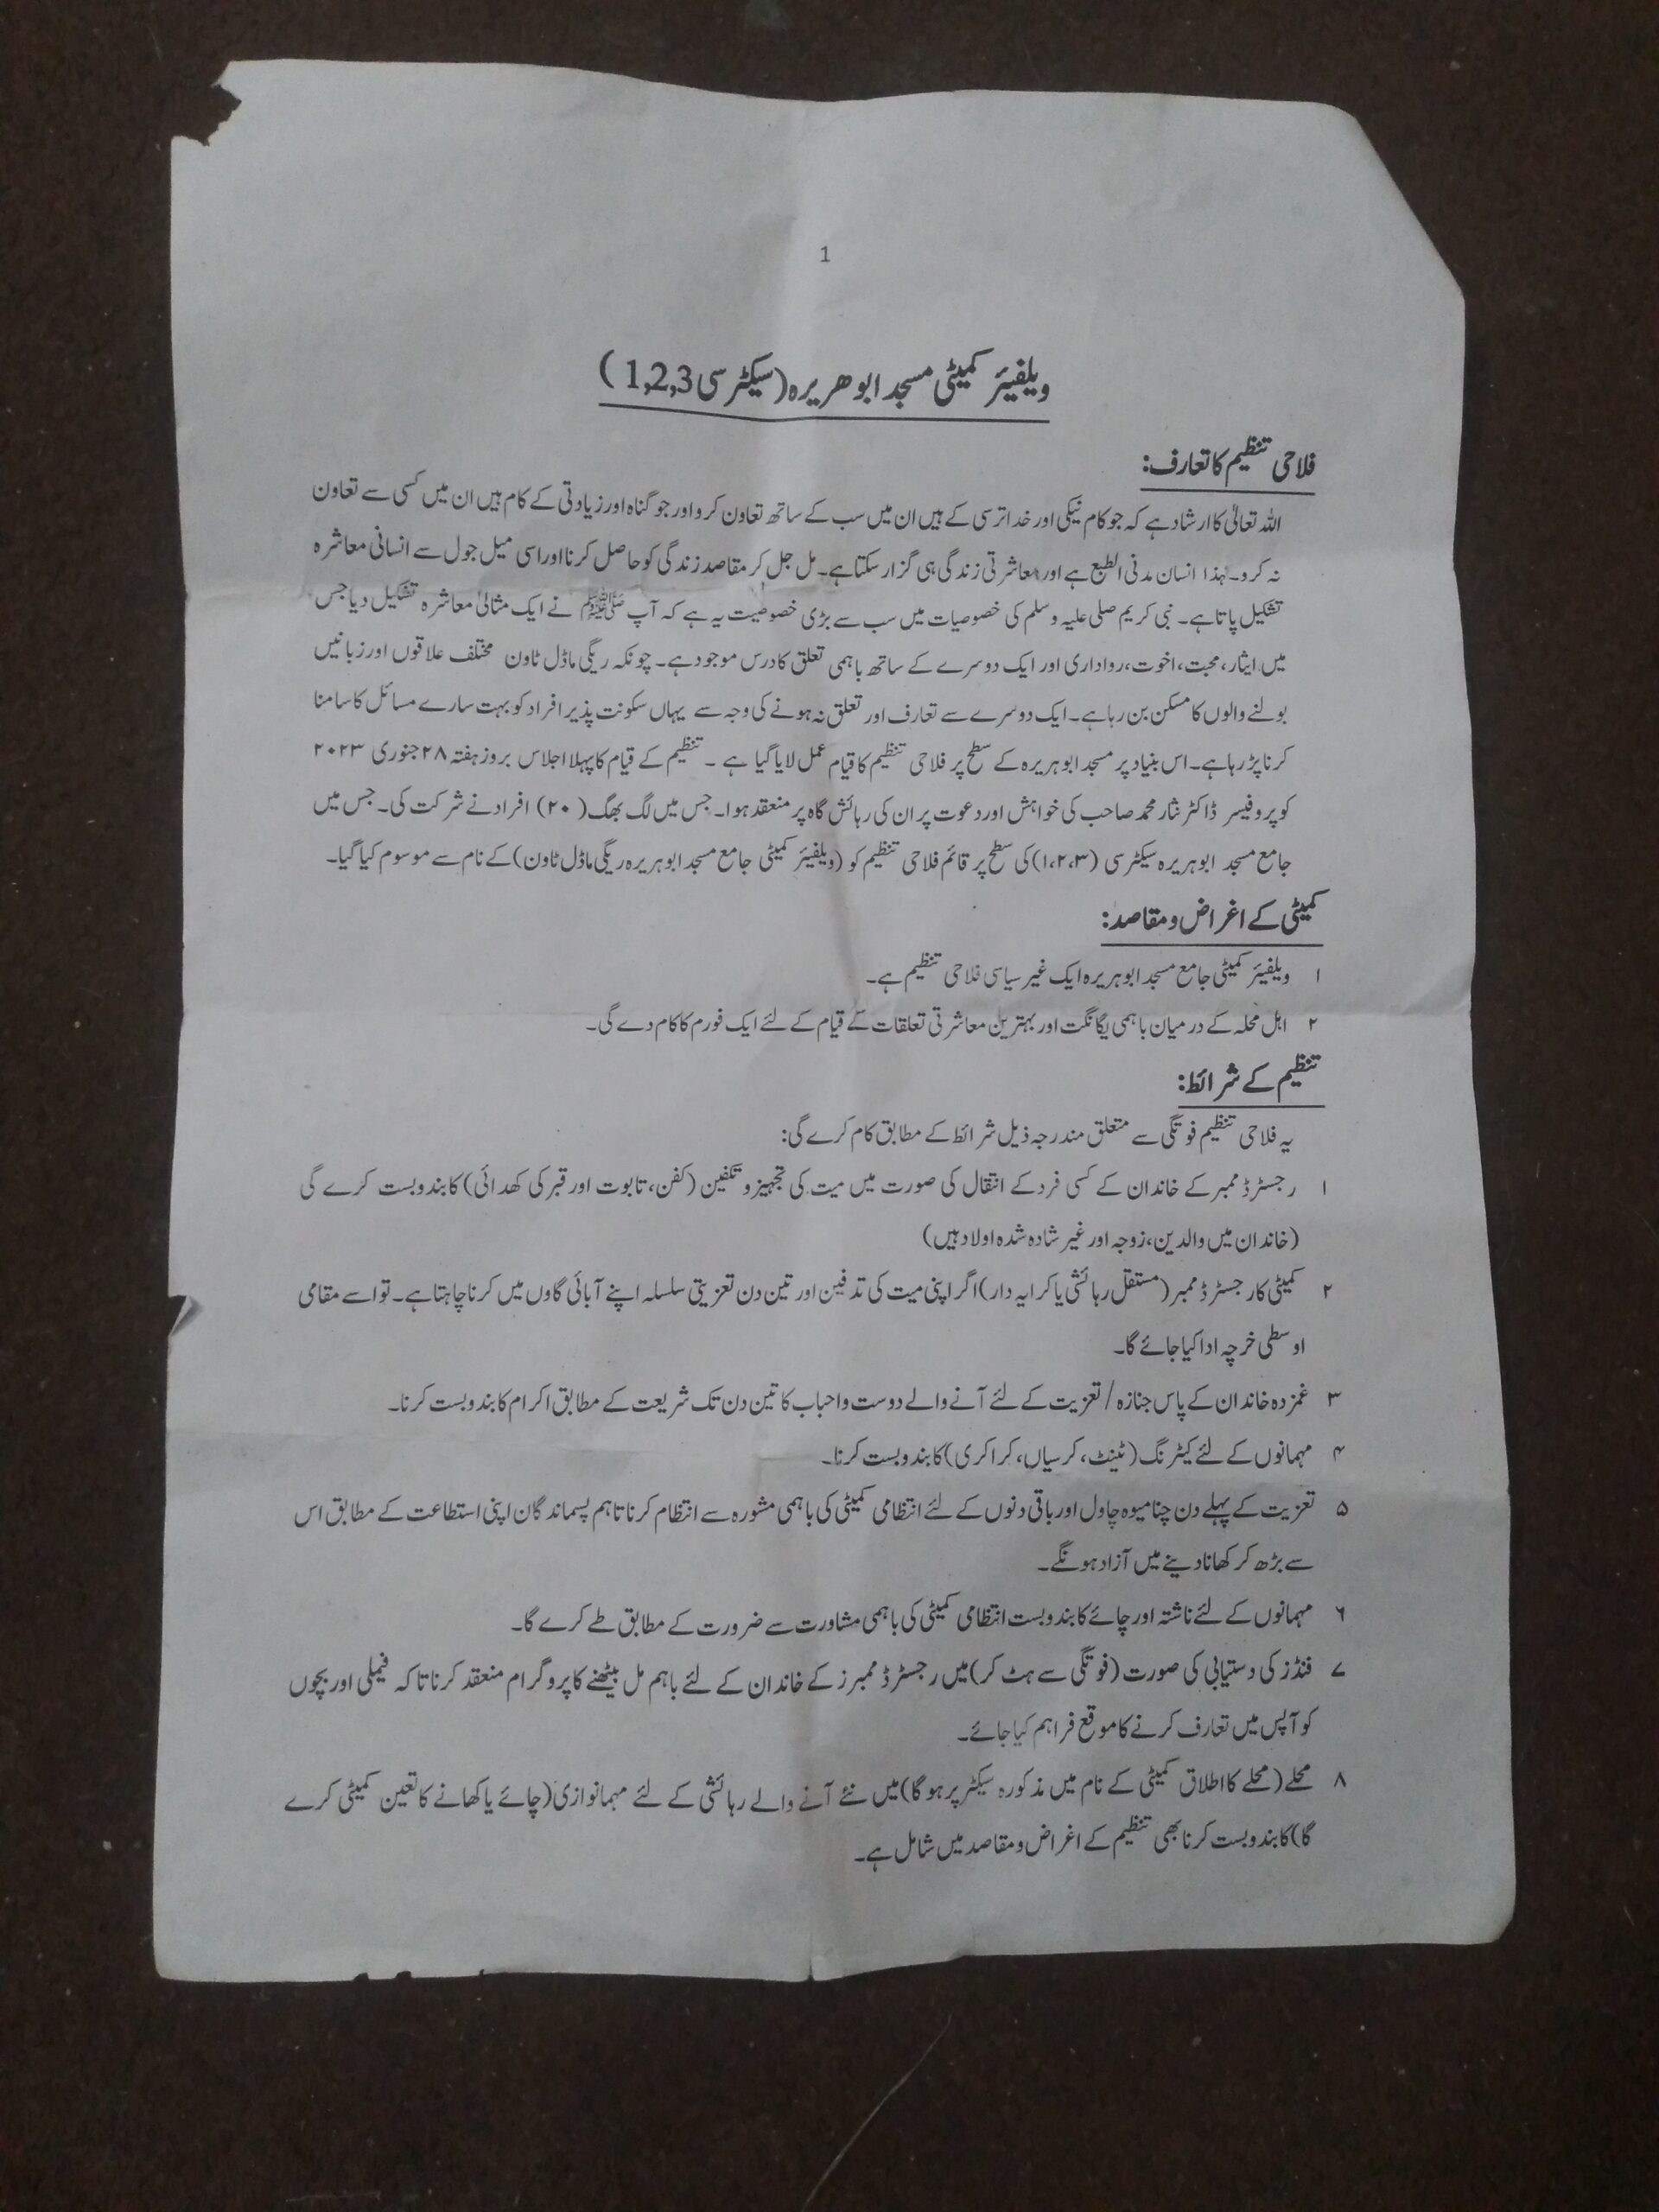 1
ویلفیئر کمیٹی مسجد ابوھریرہ (سیکٹر سی 1,2,3)
فلاحی تنظیم کا تعارف:
اللہ تعالیٰ کا ارشاد ہے کہ جو کام نیکی اور خدا ترسی کے ہیں ان میں سب کے ساتھ تعاون کرو اور جو گناہ اور زیادتی کے کام ہیں ان میں کسی سے تعاون
نہ کرو۔ لہذا انسان مدنی الطبع ہے اور معاشرتی زندگی ہی گزار سکتا ہے۔ مل جل کر مقاصد زندگی کو حاصل کرنا اور اسی میل جول سے انسانی معاشرہ
تشکیل پاتا ہے۔ نبی کریم صلی علیہ وسلم کی خصوصیات میں سب سے بڑی خصوصیت یہ ہے کہ آپ ﷺ نے ایک مثالی معاشرہ تشکیل دیا جس
میں ایثار، محبت، اخوت، رواداری اور ایک دوسرے کے ساتھ باہمی تعلق کا درس موجود ہے۔ چونکہ ریگی ماڈل ٹاون مختلف علاقوں اور زبانیں
بولنے والوں کا مسکن بن رہا ہے۔ ایک دوسرے سے تعارف اور تعلق نہ ہونے کی وجہ سے یہاں سکونت پذیر افراد کو بہت سارے مسائل کا سامنا
کرنا پڑ رہا ہے۔ اس بنیاد پر مسجد ابوہریرہ کے سطح پر فلاحی تنظیم کا قیام عمل لایا گیا ہے ۔ تنظیم کے قیام کا پہلا اجلاس بروز ہفتہ ۲۸ جنوری ۲۰۲۳
کو پروفیسر ڈاکٹر نثار محمد صاحب کی خواہش اور دعوت پر ان کی رہائش گاہ پر منعقد ہوا۔ جس میں لگ بھگ (۲۰) افراد نے شرکت کی۔ جس میں
جامع مسجد ابوہریرہ سیکٹر سی (۱،۲،۳) کی سطح پر قائم فلاحی تنظیم کو (ویلفیئر کمیٹی جامع مسجد ابوہریرہ ریگی ماڈل ٹاون) کے نام سے موسوم کیا گیا۔
کمیٹی کے اغراض و مقاصد:
۱ ویلفیئر کمیٹی جامع مسجد ابوہریرہ ایک غیر سیاسی فلاحی تنظیم ہے۔
۲ اہل محلہ کے درمیان باہمی یگانگت اور بہترین معاشرتی تعلقات کے قیام کے لئے ایک فورم کا کام دے گی۔
تنظیم کے شرائط:
یہ فلاحی تنظیم فوتگی سے متعلق مندرجہ ذیل شرائط کے مطابق کام کرے گی:
۱ رجسٹرڈ ممبر کے خاندان کے کسی فرد کے انتقال کی صورت میں میت کی تجہیز و تکفین (کفن، تابوت اور قبر کی کھدائی) کا بندوبست کرے گی
(خاندان میں والدین، زوجہ اور غیر شادہ شدہ اولاد ہیں)
۲ کمیٹی کا رجسٹرڈ ممبر (مستقل رہائشی یا کرایہ دار) اگر اپنی میت کی تدفین اور تین دن تعزیتی سلسلہ اپنے آبائی گاوں میں کرنا چاہتا ہے۔ تو اسے مقامی
اوسطی خرچہ ادا کیا جائے گا۔
۳ غمزدہ خاندان کے پاس جنازہ / تعزیت کے لئے آنے والے دوست و احباب کا تین دن تک شریعت کے مطابق اکرام کا بندوبست کرنا۔
۴ مہمانوں کے لئے کیٹرنگ (ٹینٹ، کرسیاں، کراکری) کا بندوبست کرنا۔
۵ تعزیت کے پہلے دن چنا میوہ چاول اور باقی دنوں کے لئے انتظامی کمیٹی کی باہمی مشورہ سے انتظام کرنا تاہم پسماندگان اپنی استطاعت کے مطابق اس
سے بڑھ کر کھانا دینے میں آزاد ہونگے۔
۶ مہمانوں کے لئے ناشتہ اور چائے کا بندوبست انتظامی کمیٹی کی باہمی مشاورت سے ضرورت کے مطابق طے کرے گا۔
۷ فنڈز کی دستیابی کی صورت (فوتگی سے ہٹ کر) میں رجسٹرڈ ممبرز کے خاندان کے لئے باہم مل بیٹھنے کا پروگرام منعقد کرنا تاکہ فیملی اور بچوں
کو آپس میں تعارف کرنے کا موقع فراہم کیا جائے۔
۸ محلے (محلے کا اطلاق کمیٹی کے نام میں مذکورہ سیکٹر پر ہوگا) میں نئے آنے والے رہائشی کے لئے مہمانوازی (چائے یا کھانے کا تعین کمیٹی کرے
گا) کا بندوبست کرنا بھی تنظیم کے اغراض و مقاصد میں شامل ہے۔